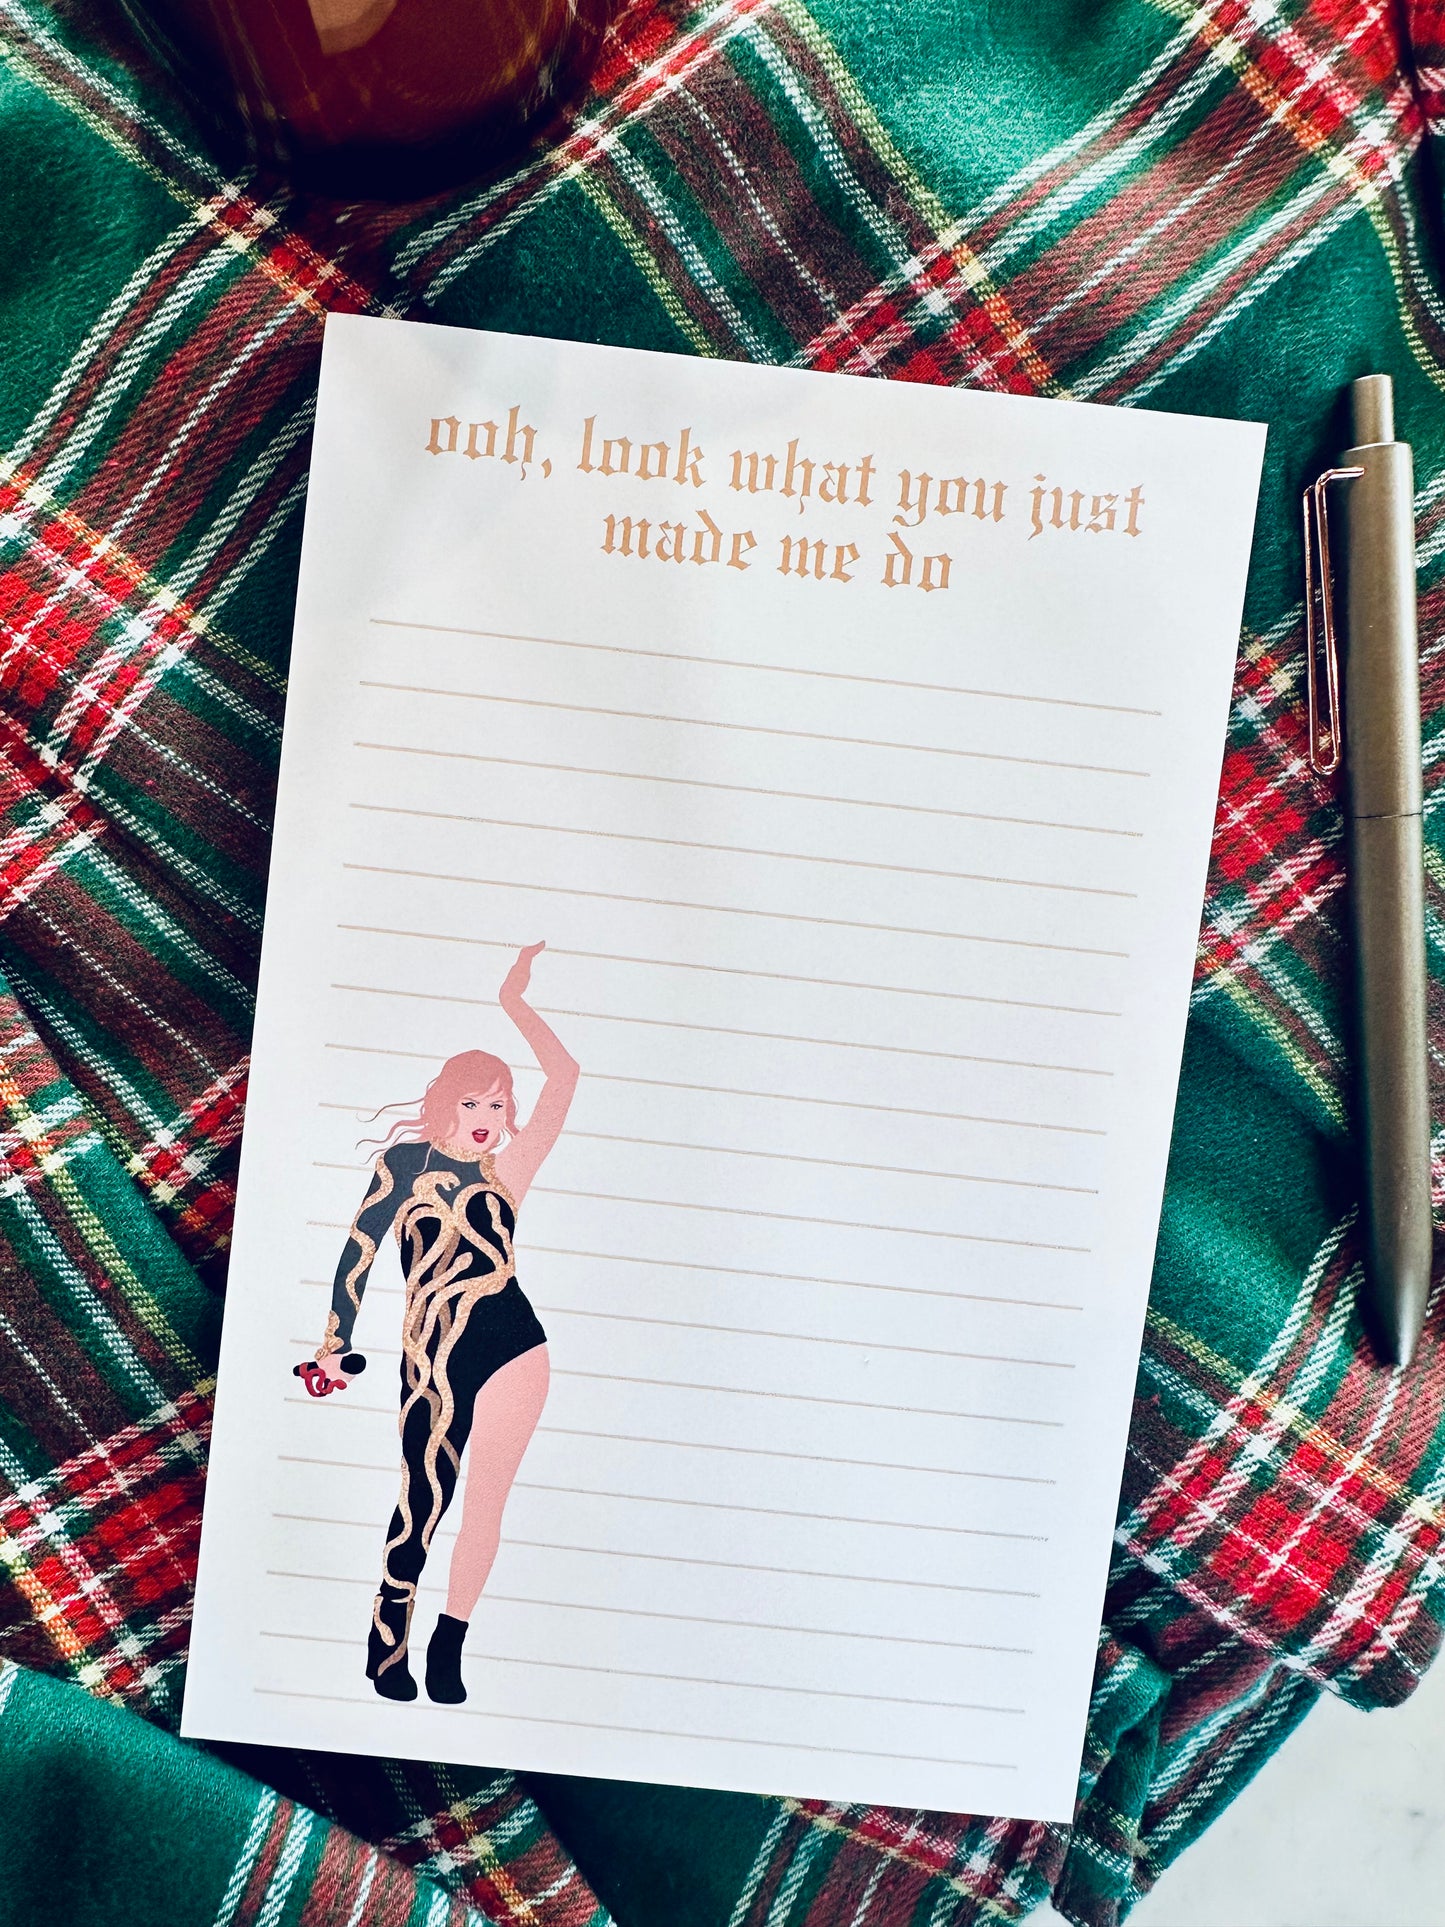 ooh, look what you just
made me do